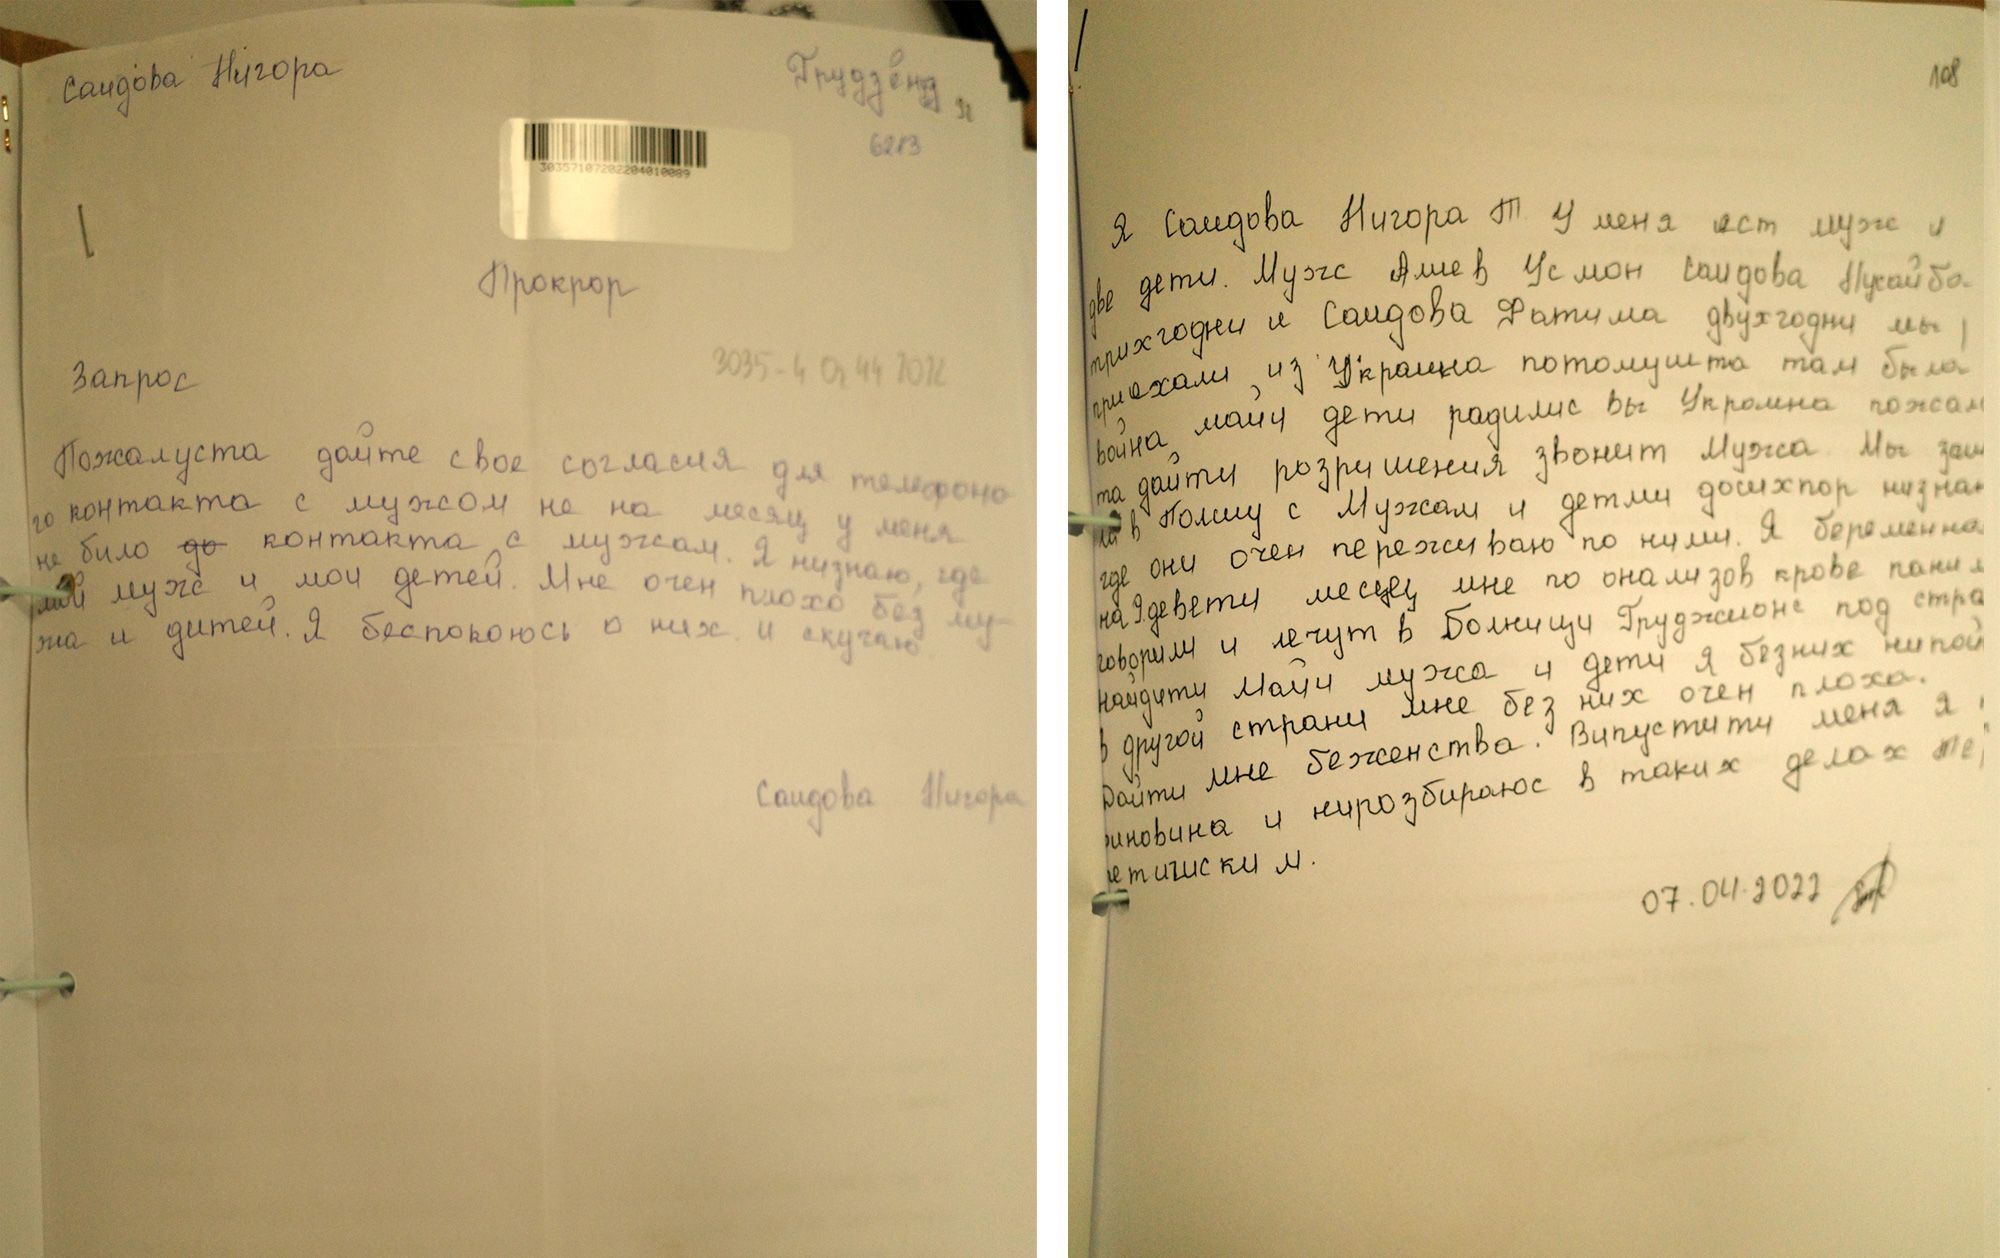 Саидова Нигора
Грудзёндз
92
6213
303571072022204010089
Прокрор
Запрос
3035-4 44 2022
Пожалуста дойте свое согласия для телефоно
го контакта с мужсом не на месяц у меня
не било до контакта с мужсам. Я низнаю, где
мой мужс и мои детей. Мне очен плохо без му-
жа и дитей. Я беспокоюсь о них и скучаю
Саидова Нигора
108
Я Саидова Нигора Т. У меня ест мужс и
две дети. Мужс Алиев Усмон Саидова
трихгодни и Саидова Фатима двухгодни мы
приехали из Украина потомушта там была
война майи дети радилис вы Украина пожал
та дайти розришения звонит Мужса. Мы заш
ли в Полшу с Мужсам и детми досихпор низнаю
где они очен переживаю по ними. Я беременна
на 9девети месяц мне по онализов крове
говорили и лечут в Болници под стра
найдити Майи мужса и дети я безних
в другой страни мне без них очен плоха.
Дайти мне беженства. Випустити меня я
виновина и нирозбираюс в таких делах
етичиски м.
07.04.2022